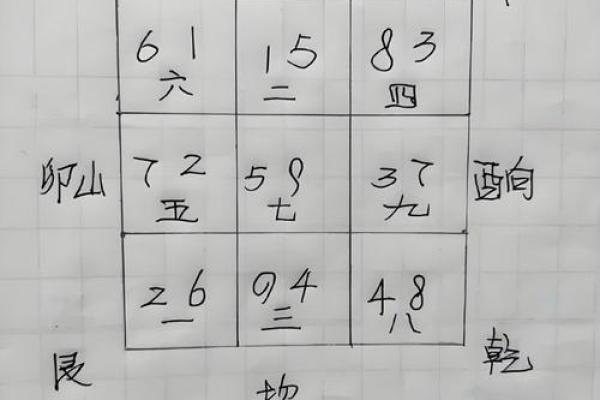 6 1 1 5 8 3
六 二 四
卯山 7 2 5 9 3 7 酉向
五 七 九
2 6 9 4 4 8
一 三 八
艮 坎 乾